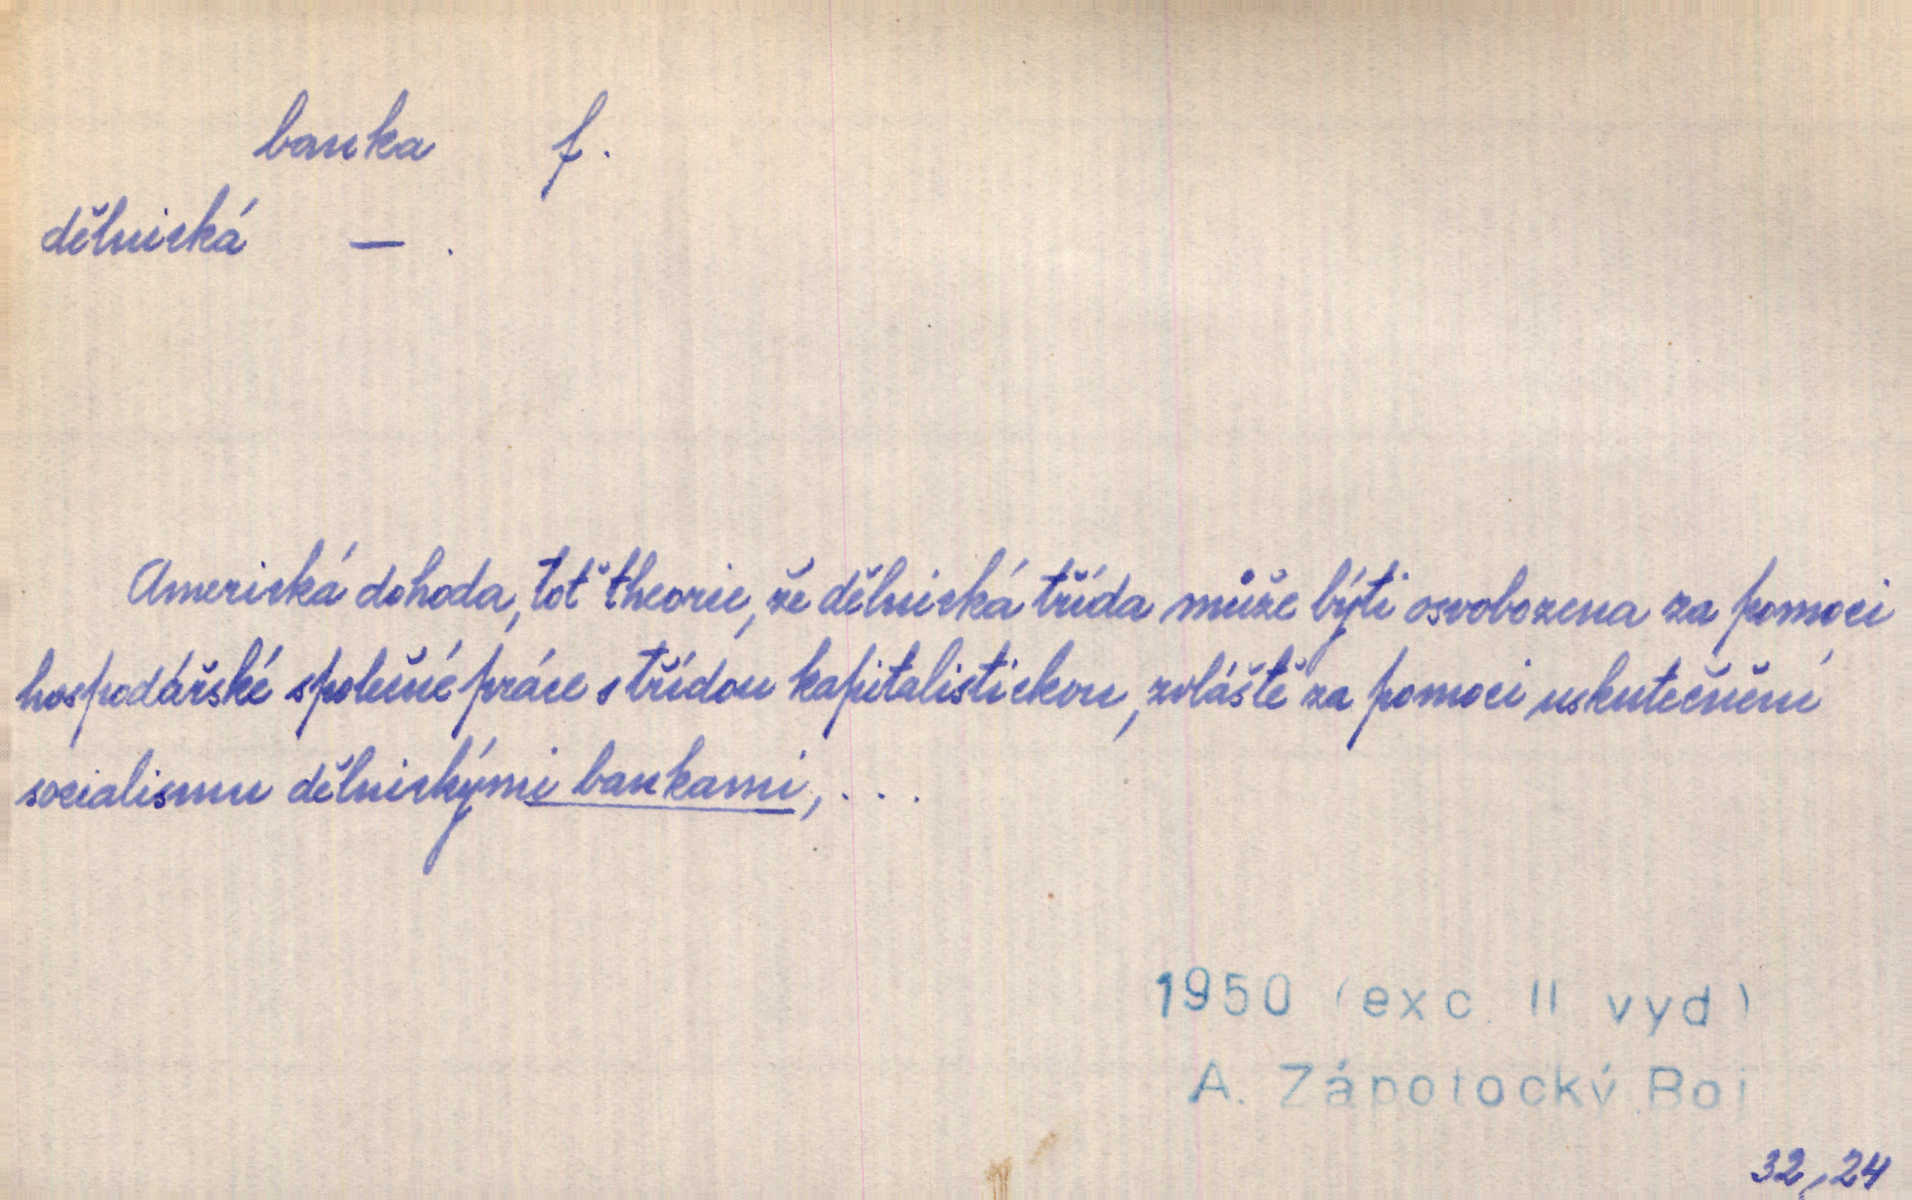 banka f.
dělnická — .
Americká dohoda, toť theorie, že dělnická třída může býti osvobozena za pomoci
hospodářské společné práce s třídou kapitalistickou, zvláště za pomoci uskutečnění
socialismu dělnickými bankami, . . .
1950 (exc. II vyd)
A. Zápotocký Boj
32, 24